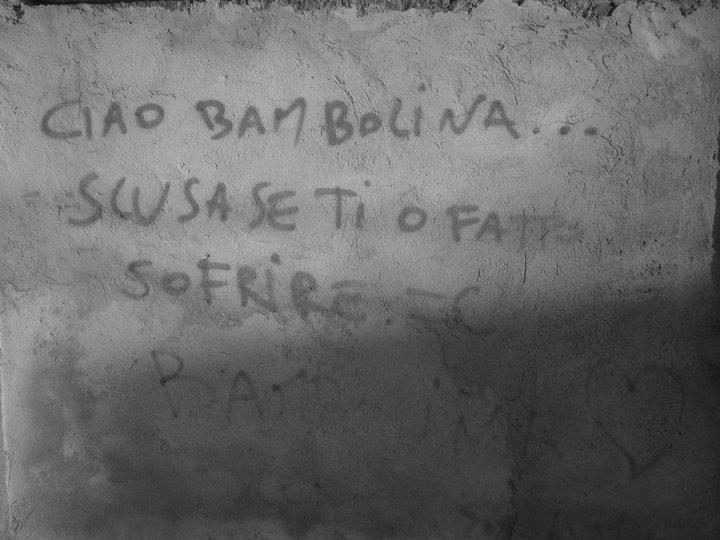 CIAO BAMBOLINA...
SCUSA SE TI O FATTO
SOFRIRE. =C